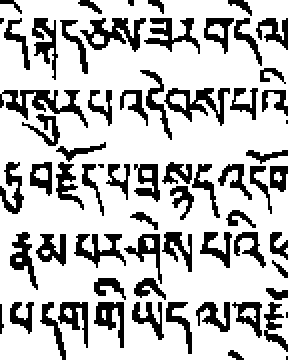 དེ་སྐད་ཅེས་ཟེར་བ་དེ་ལ
ལ་སྒྱུར་པ་འདེབས་པའི
ཏུ་བརྗོད་པ་ཐ་སྙད་འདོག
རྣམ་པར་ཤེས་པའི་
པ་དག་གི་ཡིད་ལ་བརྗ